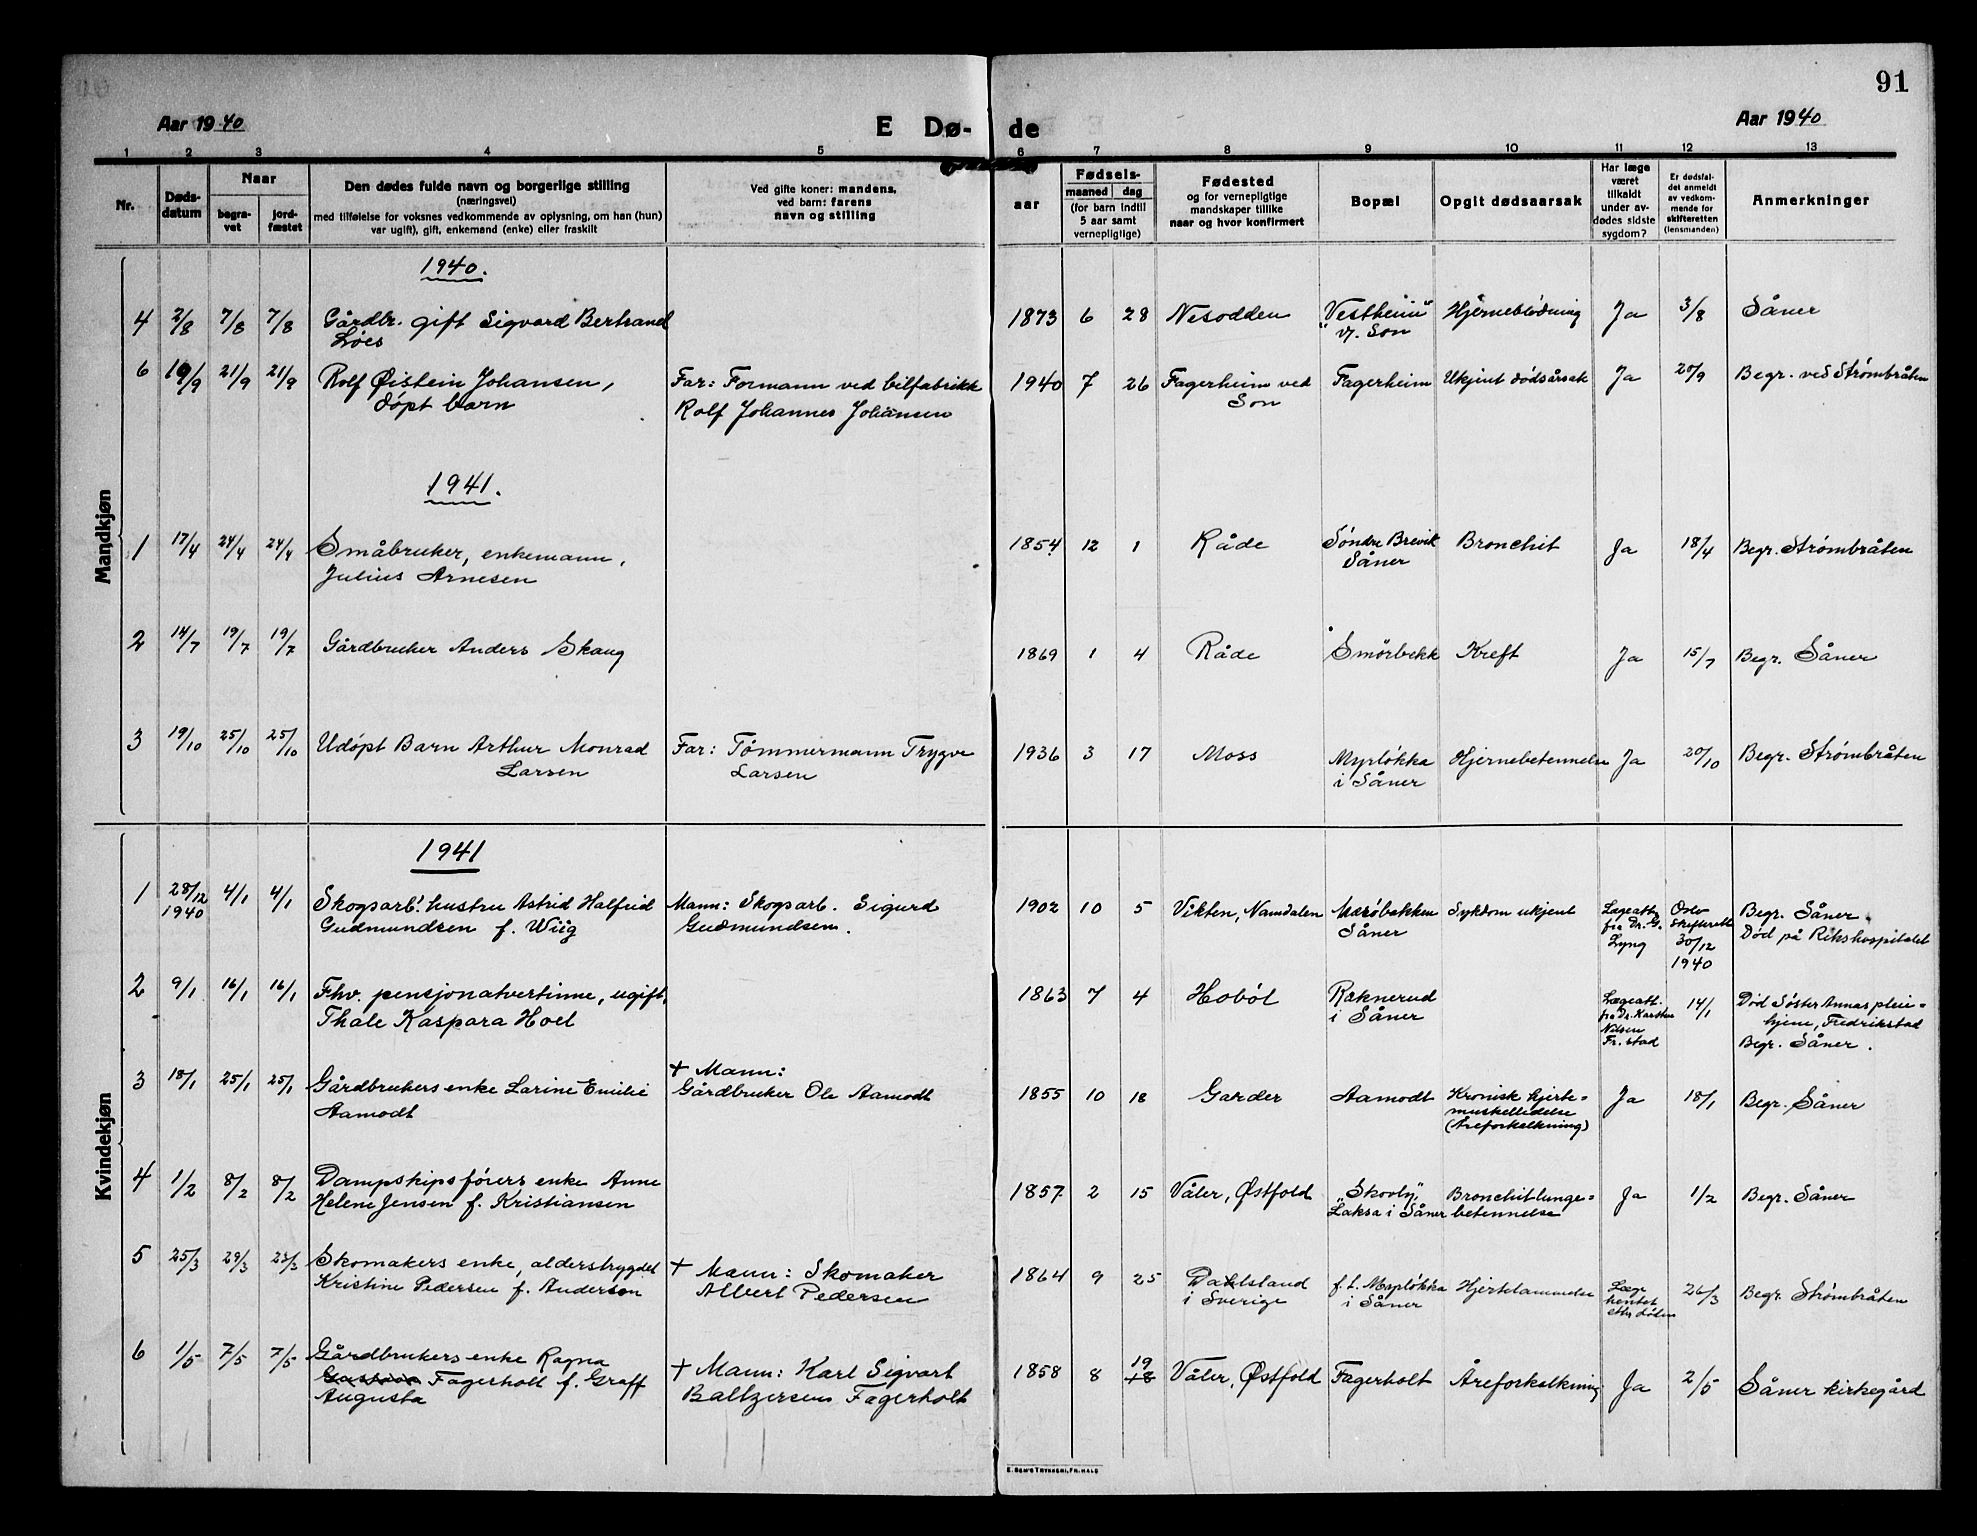 91
Aar 1940
E Dø-
de
Aar 1940
1 2 3 4 5 6 7 8 9 10 11 12 13
Nr.
Døds-
datum
Naar
begra-
vet
jord-
fæstet
Den dødes fulde navn og borgerlige stilling
(næringsvei)
med tilføielse for voksnes vedkommende av oplysning, om han (hun)
var ugift), gift, enkemand (enke) eller fraskilt
Ved gifte koner: mandens,
ved barn: farens
navn og stilling
aar
Fødsels-
maaned dag
(for barn indtil
5 aar samt
vernepligtige)
Fødested
og for vernepligtige
mandskaper tillike
naar og hvor konfirmert
Bopæl
Opgit dødsaarsak
Har læge
været
tilkaldt
under av-
dødes sidste
sygdom?
Er dødsfal-
det anmeldt
av vedkom-
mende for
skifteretten
(lensmanden)
Anmerkninger
Mandkjøn
1940.
4 2/8 7/8 7/8 Gårdbr. gift Sigvard Bertrand
Löes
1873 6 28 Nesodden "Vestheim"
v. Son
Hjerneblödning Ja 3/8 Såner
6 19/9 21/9 21/9 Rolf Øistein Johansen,
døpt barn
Far: Formann ved bilfabrikk
Rolf Johannes Johansen
1940 7 26 Fagerheim ved
Son
Fagerheim Ukjent dødsårsak Ja 20/9 Begr. ved Strømbråten
1941.
1 17/4 24/4 24/4 Småbruker, enkemann,
Julius Arnesen
1854 12 1 Råde Søndre Brevik
Såner
Bronchit Ja 18/4 Begr. Strømbråten
2 14/7 19/7 19/7 Gårdbruker Anders Skaug
1869 1 4 Råde Smörbekk Kreft Ja 15/7 Begr. Såner
3 19/10 25/10 25/10 Udøpt Barn Arthur Monrad
Larsen
Far: Tømmermann Trygve
Larsen
1936 3 17 Moss Myrløkka
i Såner
Hjernebetennelse Ja 20/10 Begr. Strømbråten
Kvindekjøn
1941
1 28/12
1940
4/1 4/1 Skogsarb. hustru Astrid Halfrid
Gudmundsen f. Wiig
Mann: Skogsarb. Sigurd
Gudmundsen.
1902 10 5 Vikten, Namdalen
Såner
Sykdom ukjent Lægeatt.
fra Dr. G.
Lyng
Oslo
Skifterett
30/12
1940
Begr. Såner.
Død på Rikshospitalet
2 9/1 16/1 16/1 Fhv. pensjonatvertinne, ugift,
Thale Kaspara Hoel
1863 7 4 Hobøl Raknerud
i Såner
Lægeatt.
fra Dr. Karsten
Nilsen
Fr.stad
14/1 Død Søster Annas pleie=
hjem, Fredrikstad
Begr. Såner.
3 18/1 25/1 25/1 Gårdbrukers enke Larine Emilie
Aamodt
+ Mann:
Gårdbruker Ole Aamodt
1855 10 18 Garder Aamodt Kronisk hjerte=
muskellidelse
(Åreforkalkning)
Ja 18/1 Begr. Såner
4 1/2 8/2 8/2 Dampskipsførers enke Anne
Helene Jensen f. Kristiansen
1857 2 15 Våler, Østfold "Skovly",
Laksa i Såner
Bronchit lunge=
betennelse
Ja 1/2 Begr. Såner
5 25/3 29/3 29/3 Skomakers enke, alderstrygdet
Kristine Pedersen f. Anderson
+ Mann: Skomaker
Albert Pedersen
1864 9 25 Dahlsland
i Sverige
f.t. Myrløkka
i Såner
Hjertelammelse Læge
hentet
etter døden
26/3 Begr. Strømbråten
6 1/5 7/5 7/5 Gårdbrukers enke Ragna
Fagerholt f. Graff
Augusta
+ Mann: Karl Sigvart
Baltzersen Fagerholt
1858 8 19
18
Våler, Østfold Fagerholt Åreforkalkning Ja 2/5 Såner kirkegård
E. SEM'S TRYKKERI, FR.HALD